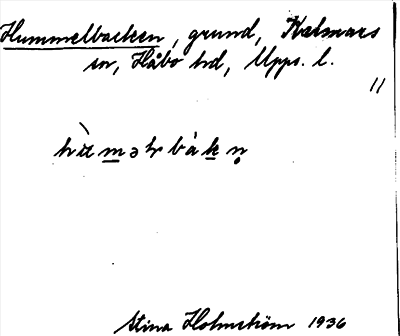 Hummelbacken, grund, Kalmars
sn, Håbo hd, Upps. l.
11
hu̇̀məlbàkn̥
Stina Holmström 1936